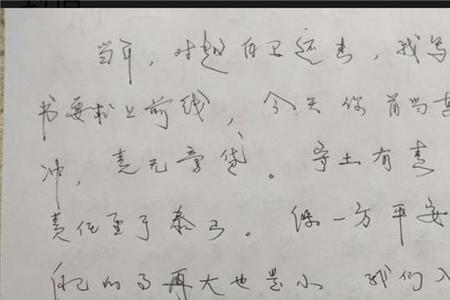 当年，对越自卫还击，我写
书要求上前线，今天你首当其
冲，责无旁贷。守土有责
责任重于泰山。保一方平安
自己的事再大也是小 我们入